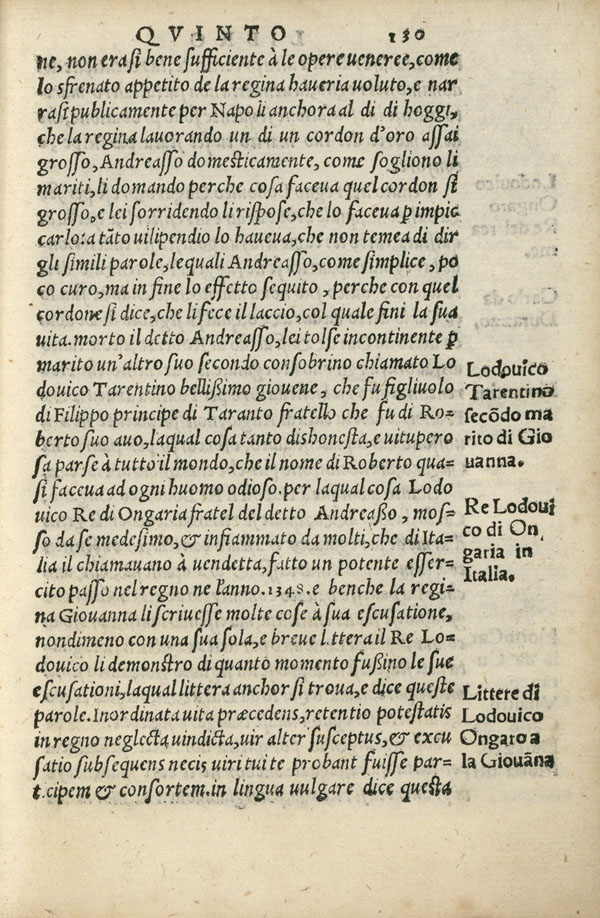 QVINTO 130
ne, non era sì bene sufficiente à le opere veneree, come
lo sfrenato appetito de la regina haueria uoluto, e nar
rasi publicamente per Napoli anchora al di di hoggi,
che la regina lauorando un di un cordon d'oro assai
grosso, Andreasso domesticamente, come sogliono li
mariti, li domando perche cosa faceua quel cordon si
grosso, e lei sorridendo li rispose, che lo faceua ꝑ impic
carlo: a tãto uilipendio lo haueua, che non temea di dir
gli simili parole, lequali Andreasso, come simplice, po
co curo, ma in fine lo effetto sequito, perche con quel
cordone si dice, che li fece il laccio, col quale fini la sua
uita. morto il detto Andreasso, lei tolse incontinente ꝑ
marito un'altro suo secondo consobrino chiamato Lo
douico Tarentino bellißimo giouene, che fu figliuolo
di Filippo principe di Taranto fratello che fu di Ro=
berto suo auo, laqual cosa tanto dishonesta, e uitupero
sa parse à tutto il mondo, che il nome di Roberto qua=
si faceua ad ogni huomo odioso. per laqual cosa Lodo
uico Re di Ongaria fratel del detto Andreaßo, mos=
so da se medesimo, & infiammato da molti, che di Ita=
lia il chiamauano à uendetta, fatto un potente esser=
cito passo nel regno ne l'anno. 1348. e benche la regi=
na Giouanna li scriuesse molte cose à sua escusatione,
nondimeno con una sua sola, e breue littera il Re Lo=
douico li demonstro di quanto momento fußino le sue
escusationi, laqual littera anchor si troua, e dice queste
parole. Inordinata uita præcedens, retentio potestatis
in regno neglecta uindicta, uir alter susceptus, & excu
satio subsequens necis uiri tui te probant fuisse par=
t.cipem & consortem. in lingua uulgare dice questa
Lodouico
Tarentino
secõdo ma
rito di Gio
uanna.
Re Lodoui
co di On,
garia in
Italia.
Littere di
Lodouico
Ongaro a
la Giouãna